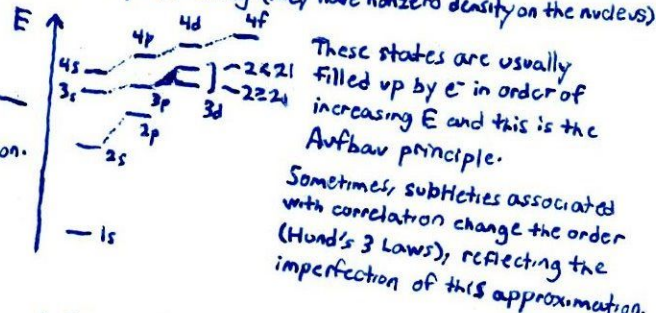 have nonzero density on the nucleus)
E
4s 4p 4d 4f
These states are usually
filled up by e⁻ in order of
increasing E and this is the
Aufbau principle.
3s 3p 3d
Z<21
Z≥21
2s 2p
on.
Sometimes, subtleties associated
with correlation change the order
(Hund's 3 Laws), reflecting the
imperfection of this approximation.
1s